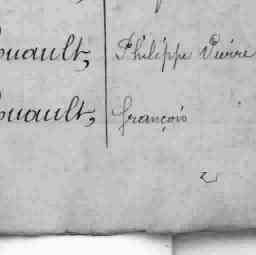 ouault, Philippe Pierre
ouault, françois